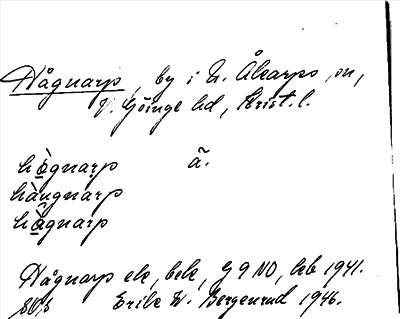 Hågnarp, by i N. Åkarps sn,
V. Göinge hd, Krist. l.
hò̱gnarp ã.
hàugnarp
hå̱̀gnarp
Hågnarp ek, bek, G 9 NO, kb 1941.
Erik W. Bergenrud 1946.